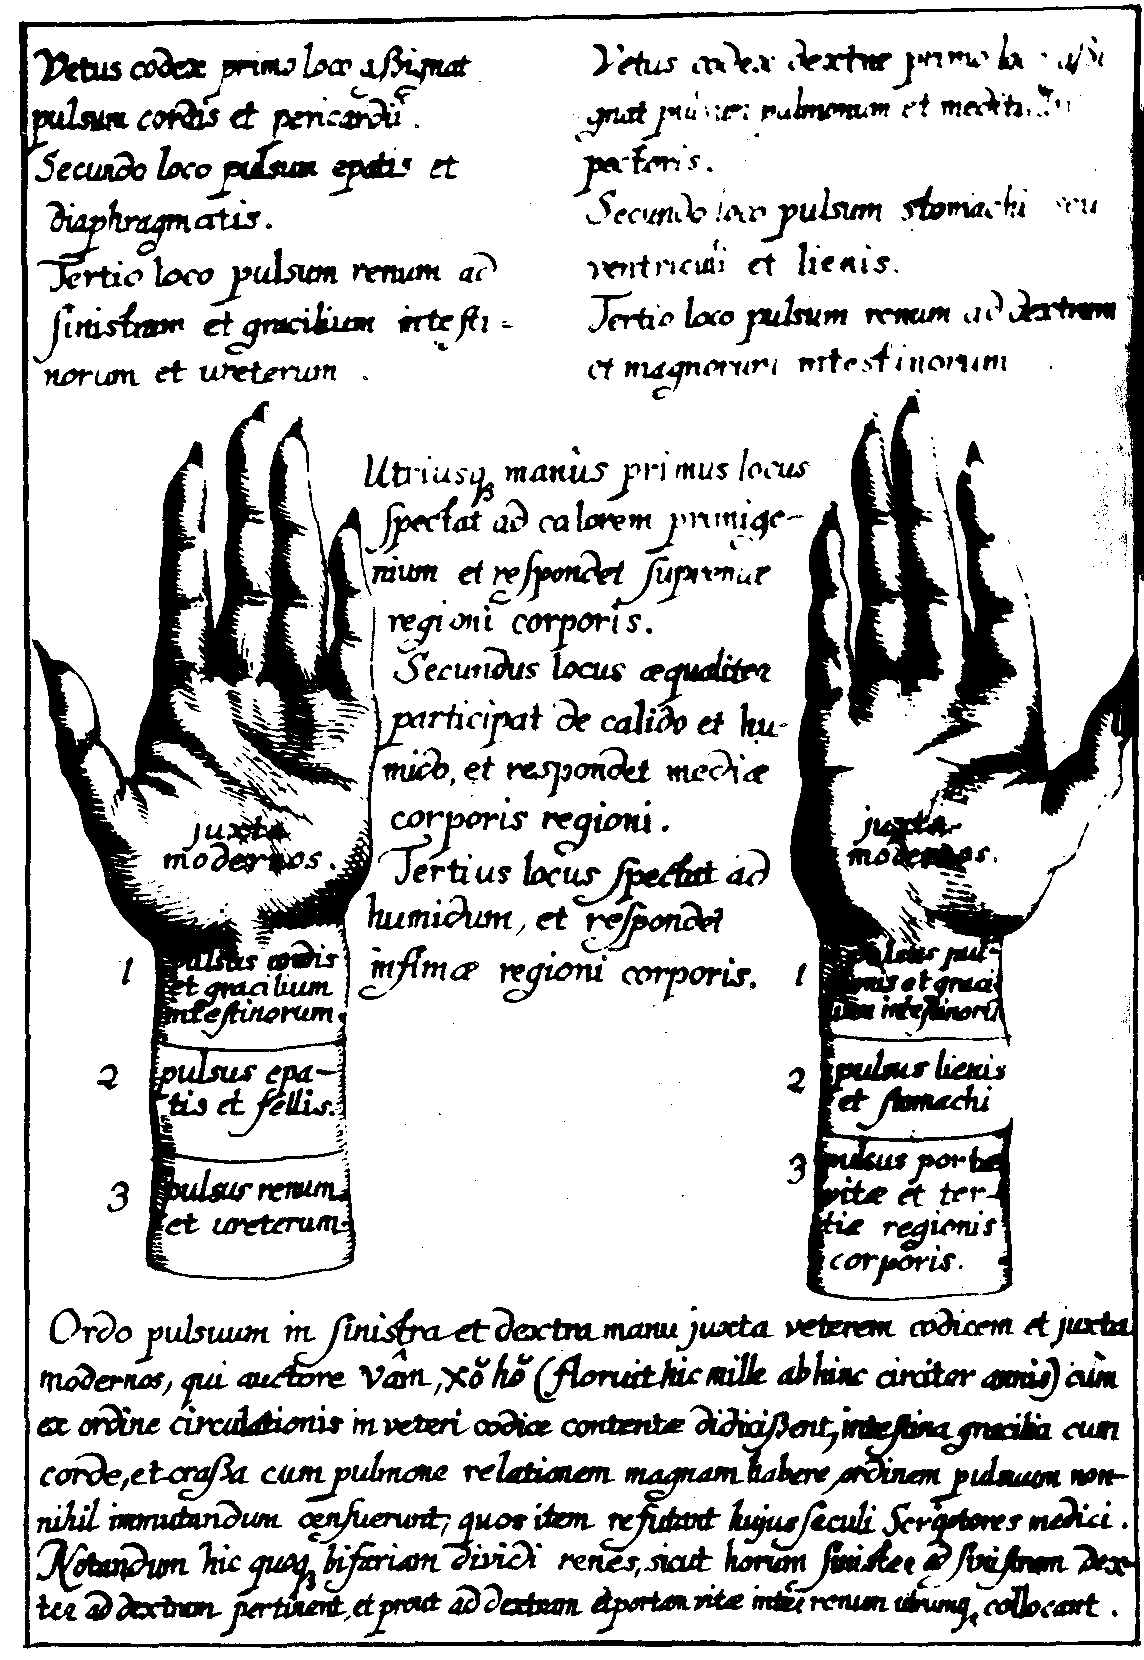 Vetus codex primo loco assignat
pulsum cordis et pericardii.
Secundo loco pulsum epatis et
diaphragmatis.
Tertio loco pulsum renum ad
sinistram et gracilium intesti=
norum et ureterum.
Vetus codex dextræ primo lo assi
gnat pulmonum et
pectoris.
Secundo loco pulsum stomachi seu
ventriculi et lienis.
Tertio loco pulsum renum ad dextram
et magnorum intestinorum
Utriusq; manûs primus locus
spectat ad calorem primige-
nium et respondet supremæ
regioni corporis.
Secundus locus æqualiter
participat de calido et hu-
mido, et respondet mediæ
corporis regioni.
Tertius locus spectat ad
humidum, et respondet
infimæ regioni corporis.
juxta
modernos.
1 pulsus cordis
et gracilium
intestinorum.
2 pulsus epa-
tis et fellis.
3 pulsus renum
et ureterum.
juxta
modernos.
1 pulsus pul-
monis et graci-
lium intestinorū
2 pulsus lienis
et stomachi
3 pulsus portæ
vitæ et ter-
tiæ regionis
corporis.
Ordo pulsuum in sinistra et dextra manu juxta veterem codicem et juxta
modernos, qui auctore Vâm, xŏ hŏ (floruit hic mille abhinc circiter annis) cùm
ex ordine circulationis in veteri codice contentæ didicissent, intestina gracilia cum
corde, et crassa cum pulmone relationem magnam habere, ordinem pulsuum non-
nihil immutandum censuerunt; quos item refutant hujus sæculi Scriptores medici.
Notandum hic quoq; bifariam dividi renes, sicut horum sinister ad sinistram dex-
ter ad dextram pertinent, et prout ad dextram et portam vitæ renum utrumq; collocant.